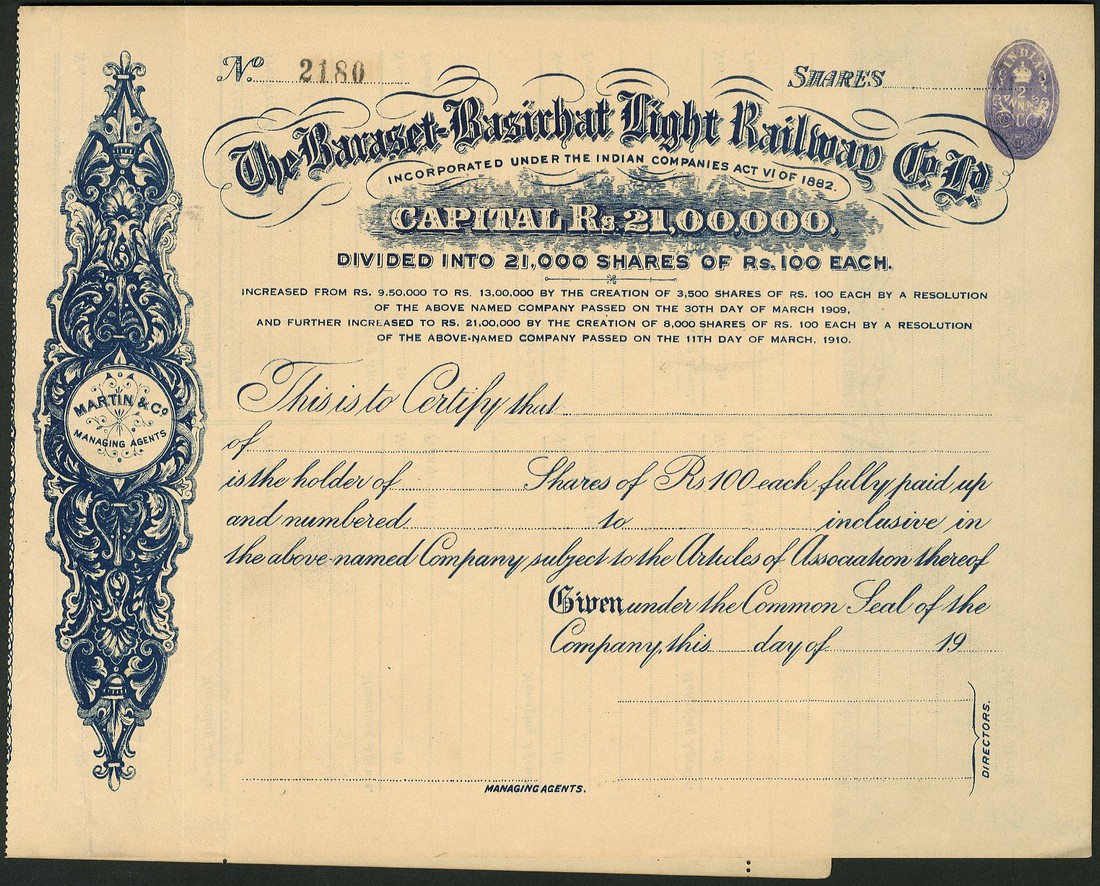 No 2180
SHARES
INDIA
The Baraset-Basirhat Light Railway Co Ld
INCORPORATED UNDER THE INDIAN COMPANIES ACT VI OF 1882.
CAPITAL Rs. 21,00,000.
DIVIDED INTO 21,000 SHARES OF Rs. 100 EACH.
INCREASED FROM RS. 9,50,000 TO RS. 13,00,000 BY THE CREATION OF 3,500 SHARES OF RS. 100 EACH BY A RESOLUTION
OF THE ABOVE NAMED COMPANY PASSED ON THE 30TH DAY OF MARCH 1909,
AND FURTHER INCREASED TO RS. 21,00,000 BY THE CREATION OF 8,000 SHARES OF RS. 100 EACH BY A RESOLUTION
OF THE ABOVE-NAMED COMPANY PASSED ON THE 11TH DAY OF MARCH, 1910.
This is to Certify that
MARTIN & Co
MANAGING AGENTS
of
is the holder of Shares of Rs 100 each, fully paid up
and numbered to inclusive in
the above-named Company subject to the Articles of Association thereof
Given under the Common Seal of the
Company, this day of 19
DIRECTORS.
MANAGING AGENTS.